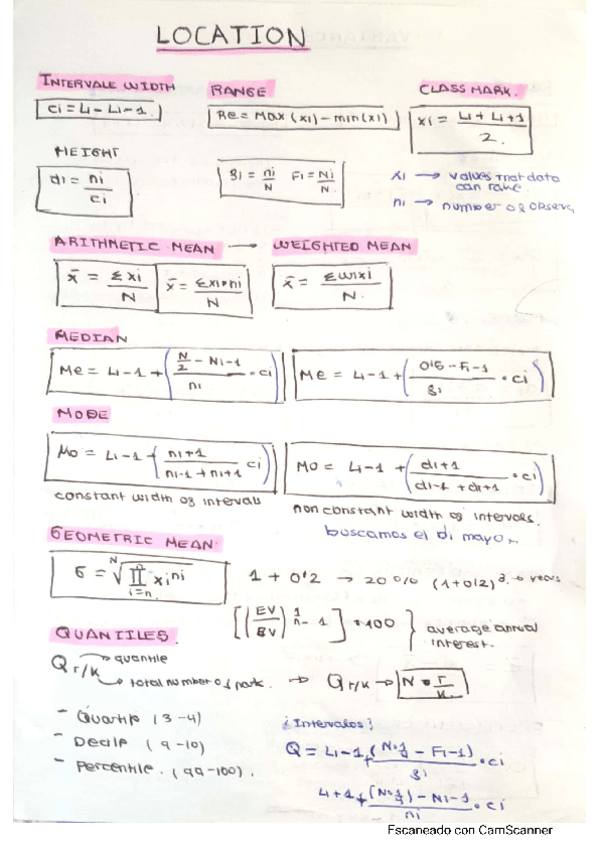 LOCATION
INTERVALE WIDTH
ci = Li - Li-1.
RANGE
Re = Max (xi) - min (xi)
CLASS MARK.
xi = Li + Li+1 / 2.
HEIGHT
di = ni / ci
fi = ni / N Fi = Ni / N.
xi → values that data
can take.
ni → number of observ,
ARITHMETIC MEAN → WEIGHTED MEAN
x̄ = Σxi / N
x̄ = Σxi·ni / N
x̄ = Σwixi / N.
MEDIAN
Me = Li-1 + ( N/2 - Ni-1 / ni · ci )
Me = Li-1 + ( 0'5 - Fi-1 / fi · ci )
MODE
Mo = Li-1 + ( ni+1 / ni-1 + ni+1 ci )
Mo = Li-1 + ( di+1 / di-1 + di+1 · ci )
constant width of intervals
non constant width of intervals.
buscamos el di mayor.
GEOMETRIC MEAN.
G = N√ ∏ i=n. xi ni
1 + 0'2 → 20% (1+0'2)3. → years
[(EV/BV) 1/n - 1] · 100 } average annual
interest.
QUANTILES.
Q r/k → quantile
→ total number of park. → Q r/k → N · r/k.
- Quartile (3-4)
- Decile (9-10)
- Percentile. (99-100).
¿Intervalos?